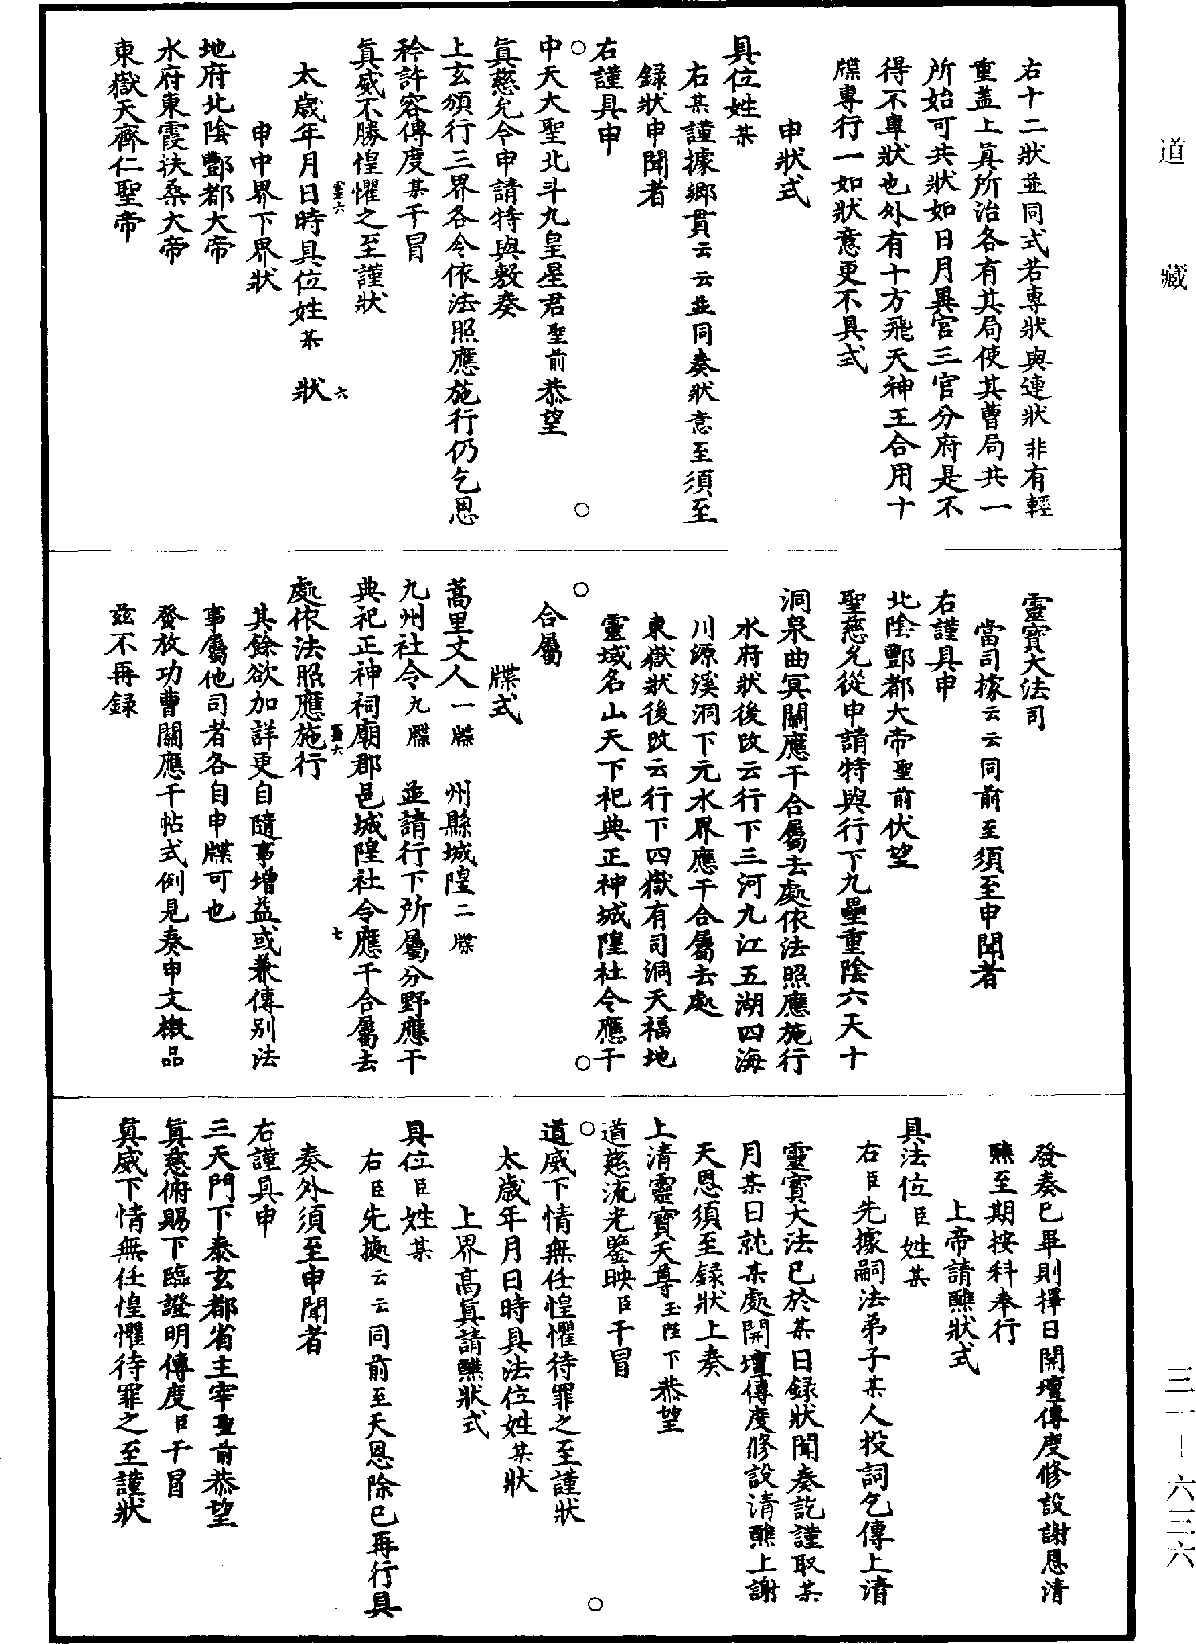 道藏
右十二狀並同式若專狀與連狀非有輕
重蓋上眞所治各有其局使其曹局共一
所始可共狀如日月異宮三官分府是不
得不專狀也外有十方飛天神王合用十
牒專行一如狀意更不具式
申狀式
具位姓某
右某謹據鄉貫云云並同奏狀意至須至
錄狀申聞者
右謹具申
中天大聖北斗九皇星君聖前恭望
眞慈允令申請特與敷奏
上玄頒行三界各令依法照應施行仍乞恩
矜許容傳度某干冒
眞威不勝惶懼之至謹狀
太歲年月日時具位姓某 狀
申中界下界狀
地府北陰酆都大帝
水府東霞扶桑大帝
東嶽天齊仁聖帝
靈寶大法司
當司據云云同前至須至申聞者
右謹具申
北陰酆都大帝聖前伏望
聖慈允從申請特與行下九壘重陰六天十
洞泉曲冥關應干合屬去處依法照應施行
水府狀後改云行下三河九江五湖四海
川源溪洞下元水界應干合屬去處
東嶽狀後改云行下四嶽有司洞天福地
靈域名山天下祀典正神城隍社令應干
合屬
牒式
蒿里丈人一牒 州縣城隍二牒
九州社令九牒 並請行下所屬分野應干
典祀正神祠廟郡邑城隍社令應干合屬去
處依法照應施行
其餘欲加詳更自隨事增益或兼傳別法
事屬他司者各自申牒可也
發放功曹關應干帖式例見奏申文檄品
茲不再録
發奏已畢則擇日開壇傳度修設謝恩清
醮至期按科奉行
上帝請醮狀式
具法位臣姓某
右臣先據嗣法弟子某人投詞乞傳上清
靈寶大法已於某日録狀聞奏訖謹取某
月某日就某處開壇傳度修設清醮上謝
天恩須至録狀上奏
上清靈寶天尊玉陛下恭望
道慈流光鑒映臣干冒
道威下情無任惶懼待罪之至謹狀
太歲年月日時具法位姓某狀
上界高眞請醮狀式
具位臣姓某
右臣先據云云同前至天恩除已再行具
奏外須至申聞者
右謹具申
三天門下泰玄都省主宰聖前恭望
眞慈俯賜下臨證明傳度臣干冒
眞威下情無任惶懼待罪之至謹狀
三一－六三六